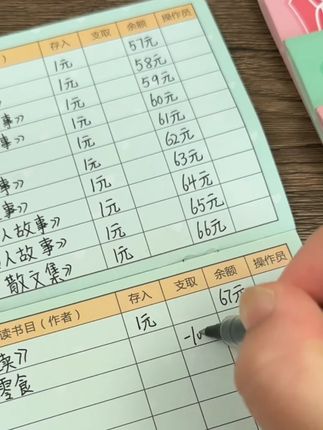 ) 存入 支取 余额 操作员
1元 57元
1元 58元
1元 59元
事》 1元 60元
事》 1元 61元
1元 62元
事》 1元 63元
事》 1元 64元
人故事》 1元 65元
人故事》 1元 66元
散文集》
读书目（作者） 存入 支取 余额 操作员
读》 1元 67元
零食